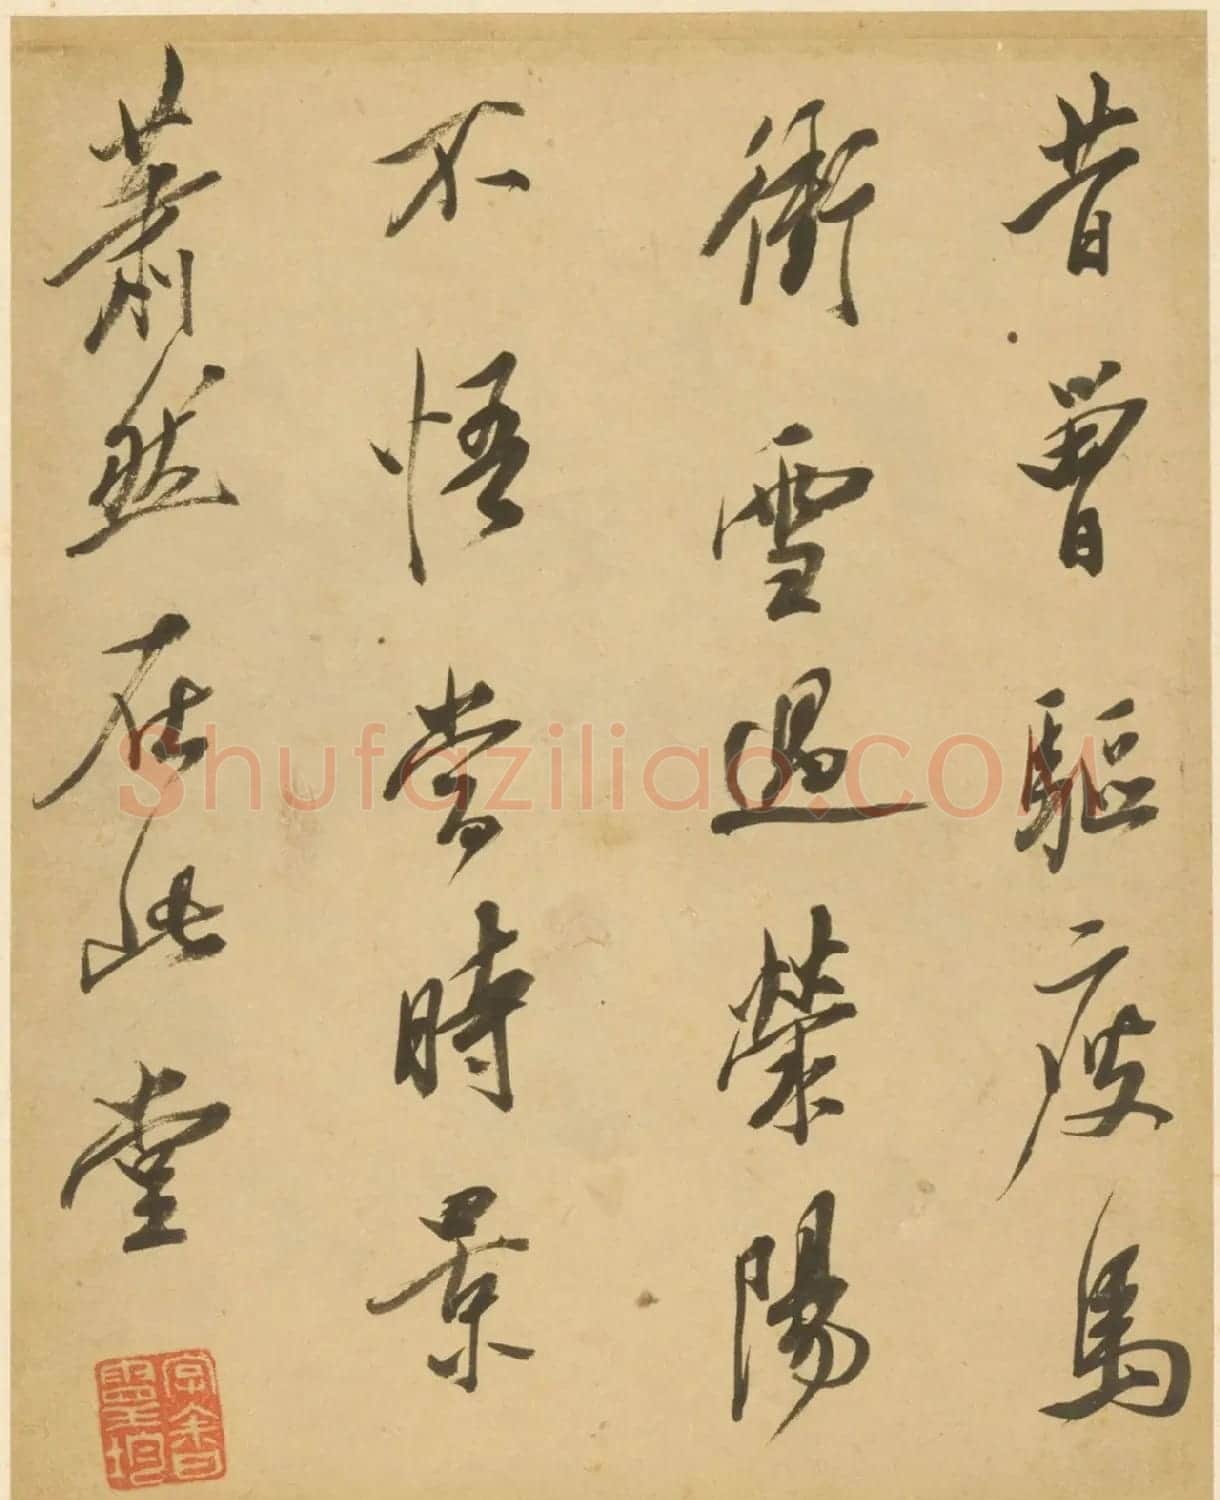 昔曾驅瘦馬
衝雪過榮陽
不悟當時景
蕭然在此堂
Shufaziliao.COM